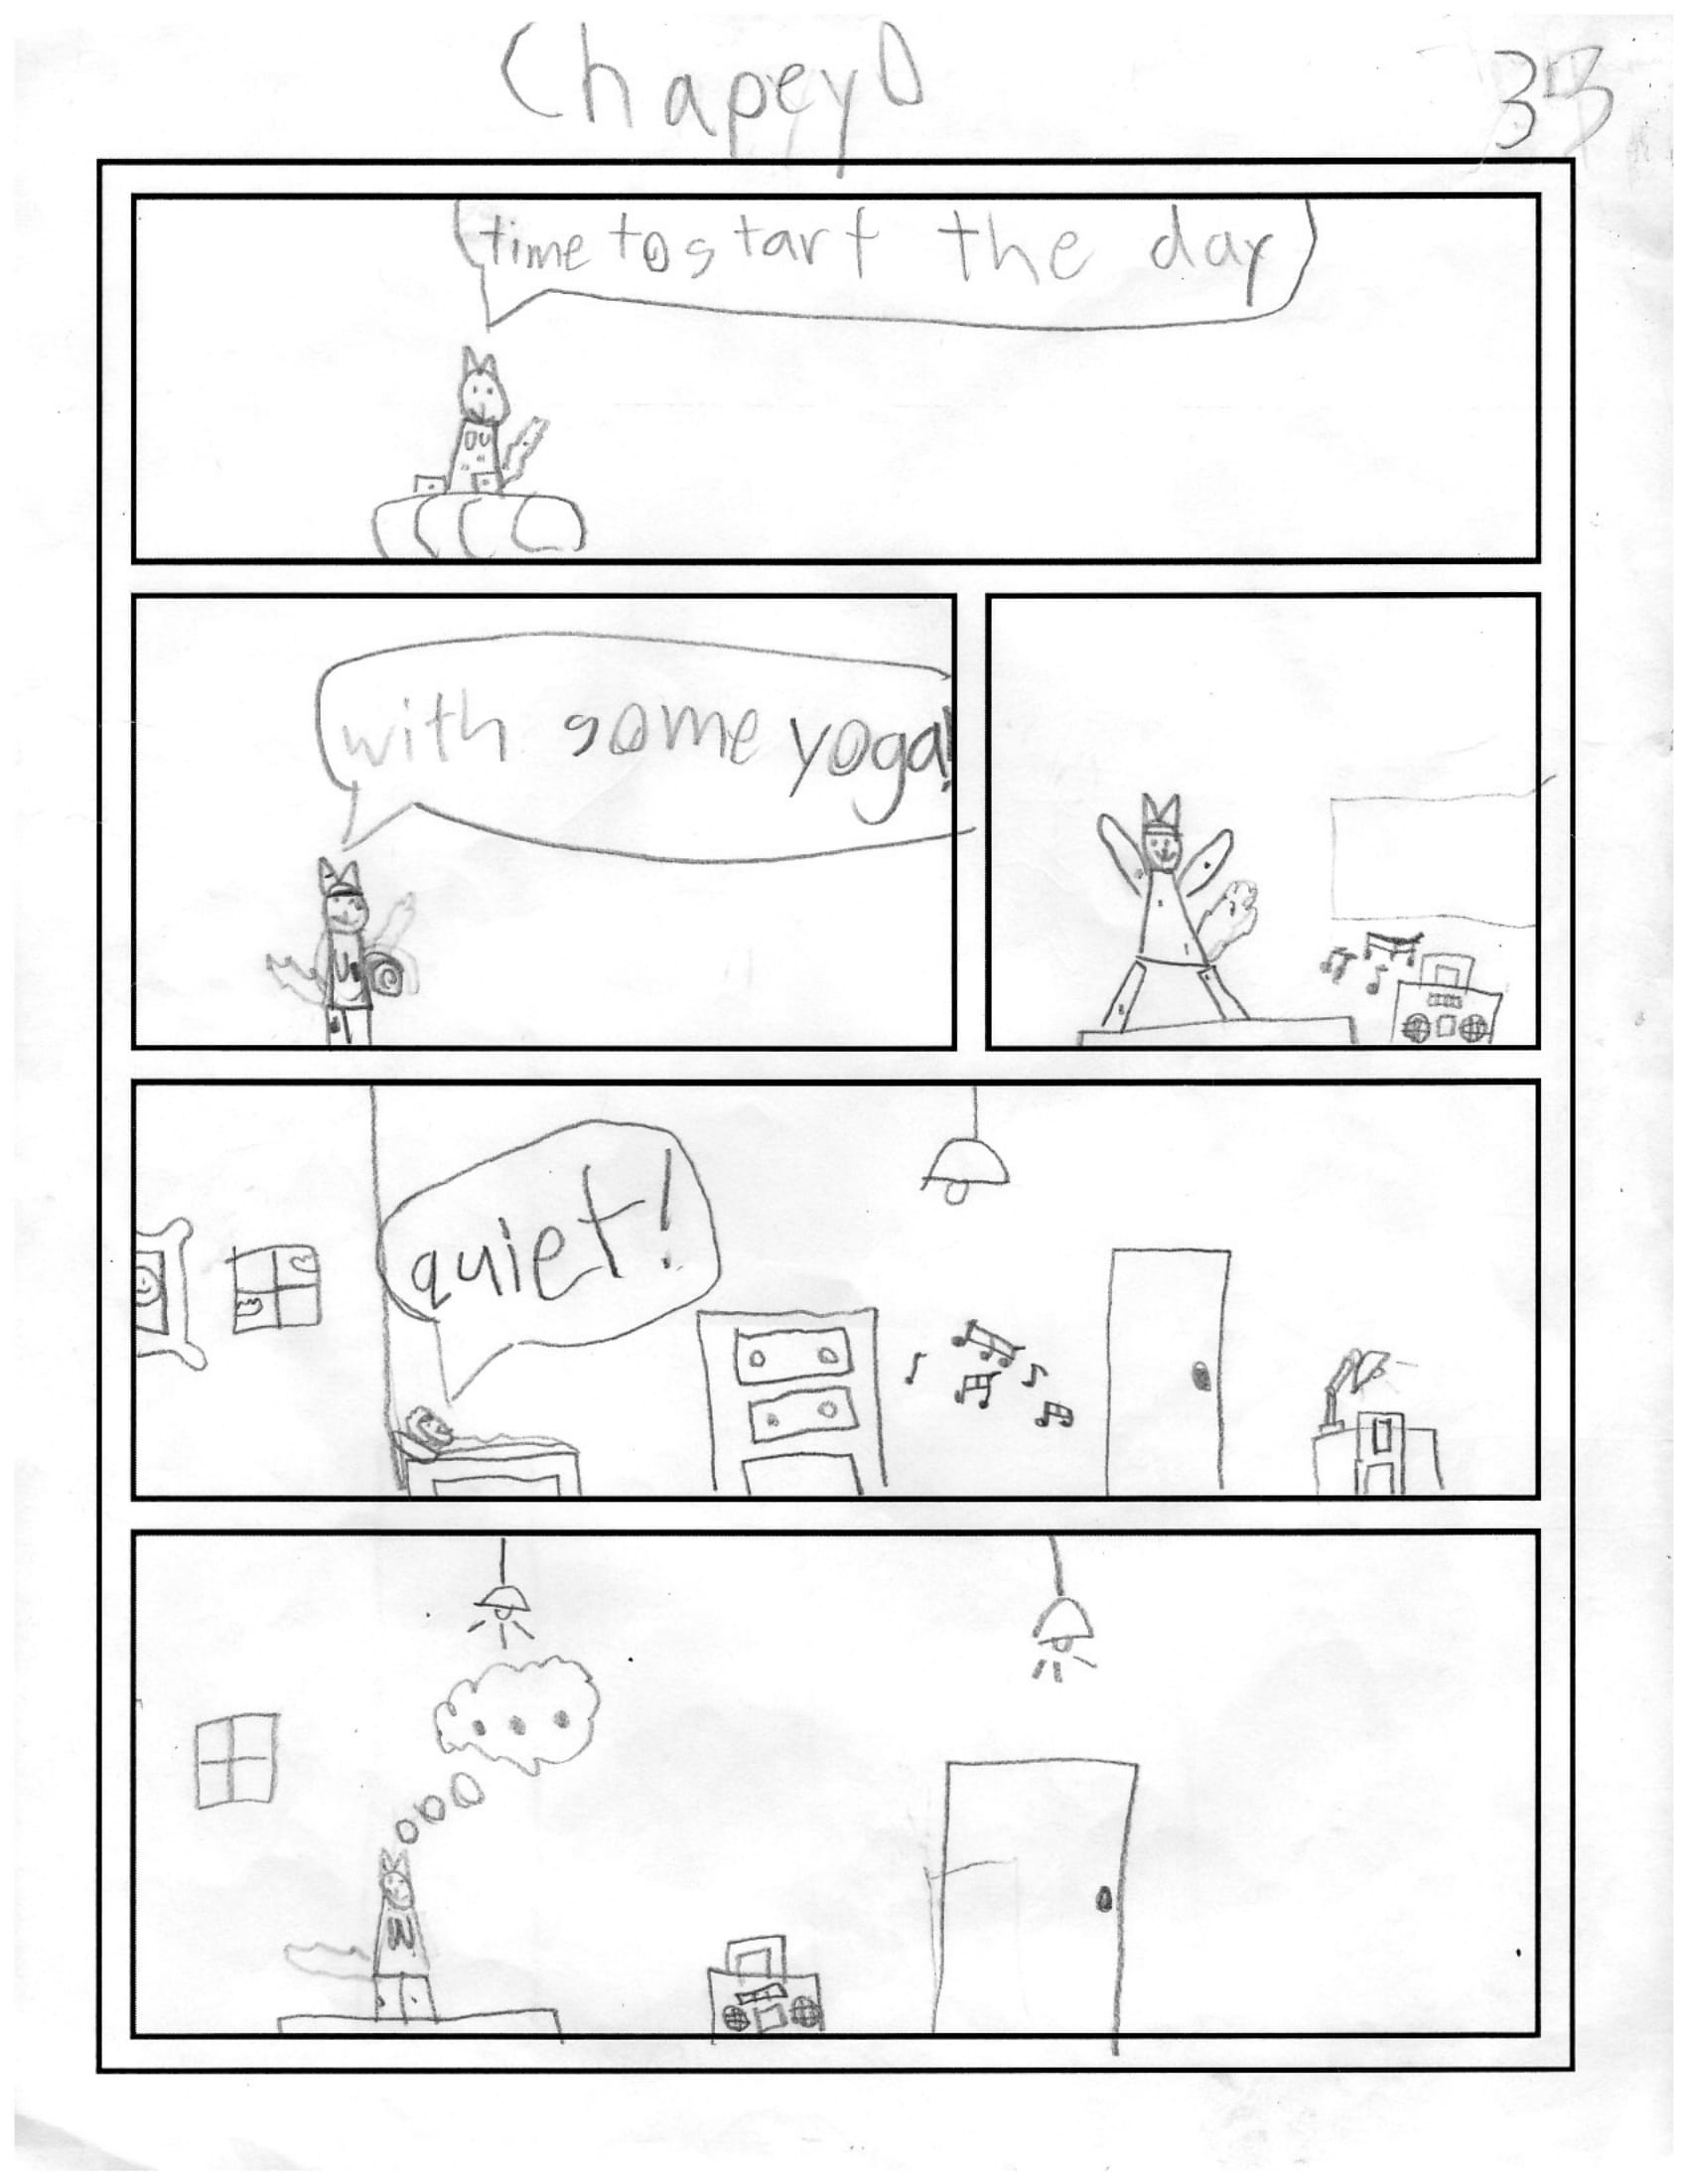 ChapeyD
time to start the day
with some yoga!
quiet!
...